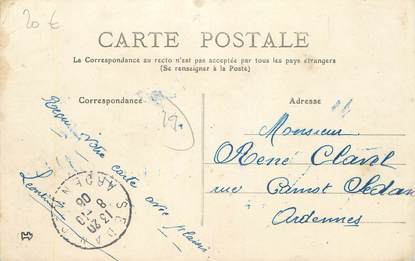 20€
CARTE POSTALE
La Correspondance au recto n'est pas acceptée par tous les pays étrangers
(Se renseigner à la Poste)
Correspondance
Adresse
29.
Reçu votre carte avec plaisir
Monsieur
René Clavel
rue Carnot Sedan
Ardennes
SEDAN
ARDENNES